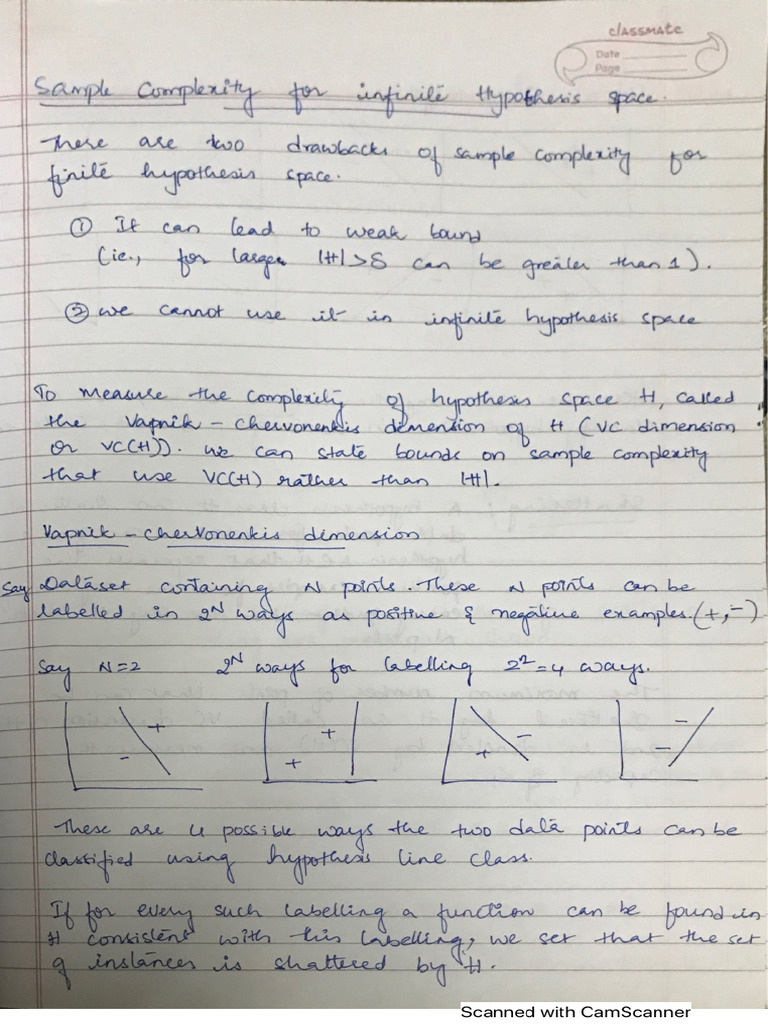 classmate
Date
Page
Sample Complexity for infinite Hypothesis space.
There are two drawbacks of sample complexity for
finite hypothesis space.
① It can lead to weak bound
(ie., for large |H| > S can be greater than 1).
② we cannot use it in infinite hypothesis space
To measure the complexity of hypothesis space H, called
the Vapnik - chervonenkis dimension of H (VC dimension
or VC(H)). we can state bounds on sample complexity
that use VC(H) rather than |H|.
Vapnik - chervonenkis dimension
Say Dataset containing N points. These N points can be
labelled in 2^N ways as positive & negative examples. (+, -)
Say N=2 2^N ways for labelling 2^2=4 ways.
+ + - -
- + + -
These are 4 possible ways the two data points can be
classified using hypothesis line class.
If for every such labelling a function can be found in
H consistent with this labelling, we set that the set
of instances is shattered by H.
Scanned with CamScanner